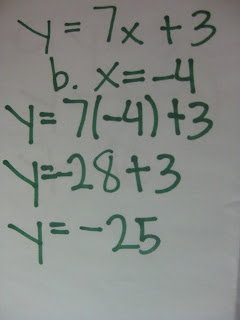 y = 7x + 3
b. x = -4
y = 7(-4) + 3
y = -28 + 3
y = -25